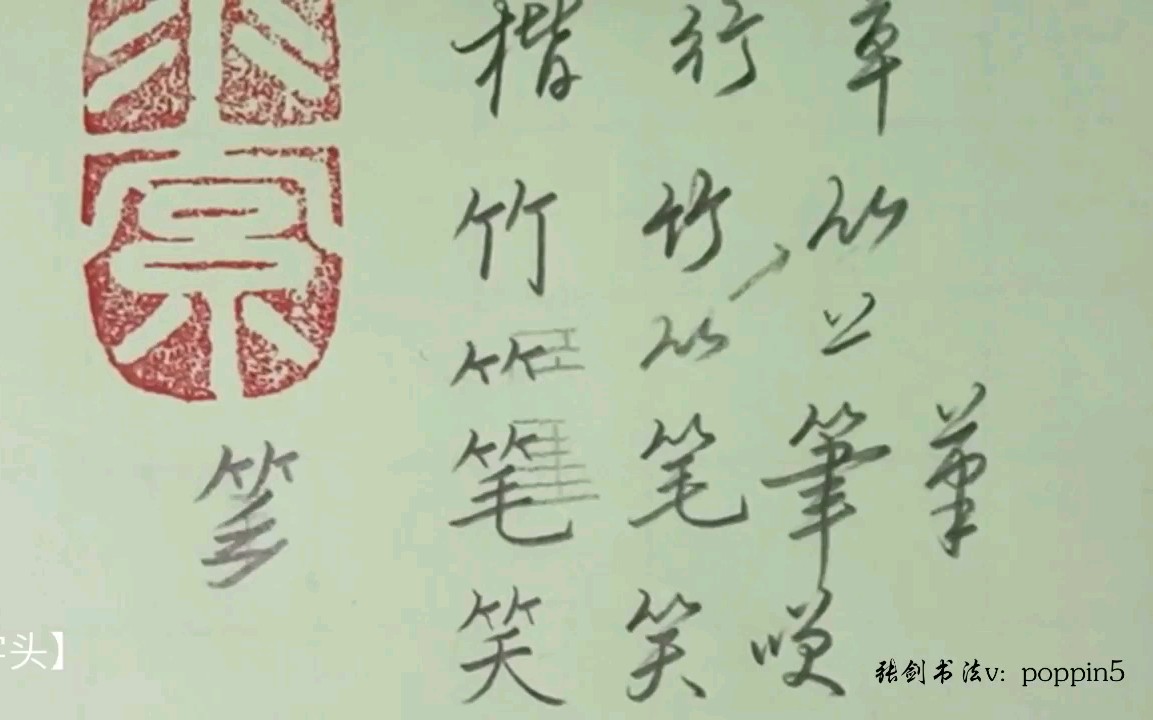 楷 行 草
竹 竹 𥫗
𥫗 𥫗
笔 笔 筆 筆
笑 笑 咲
字头】
张剑书法v: poppin5